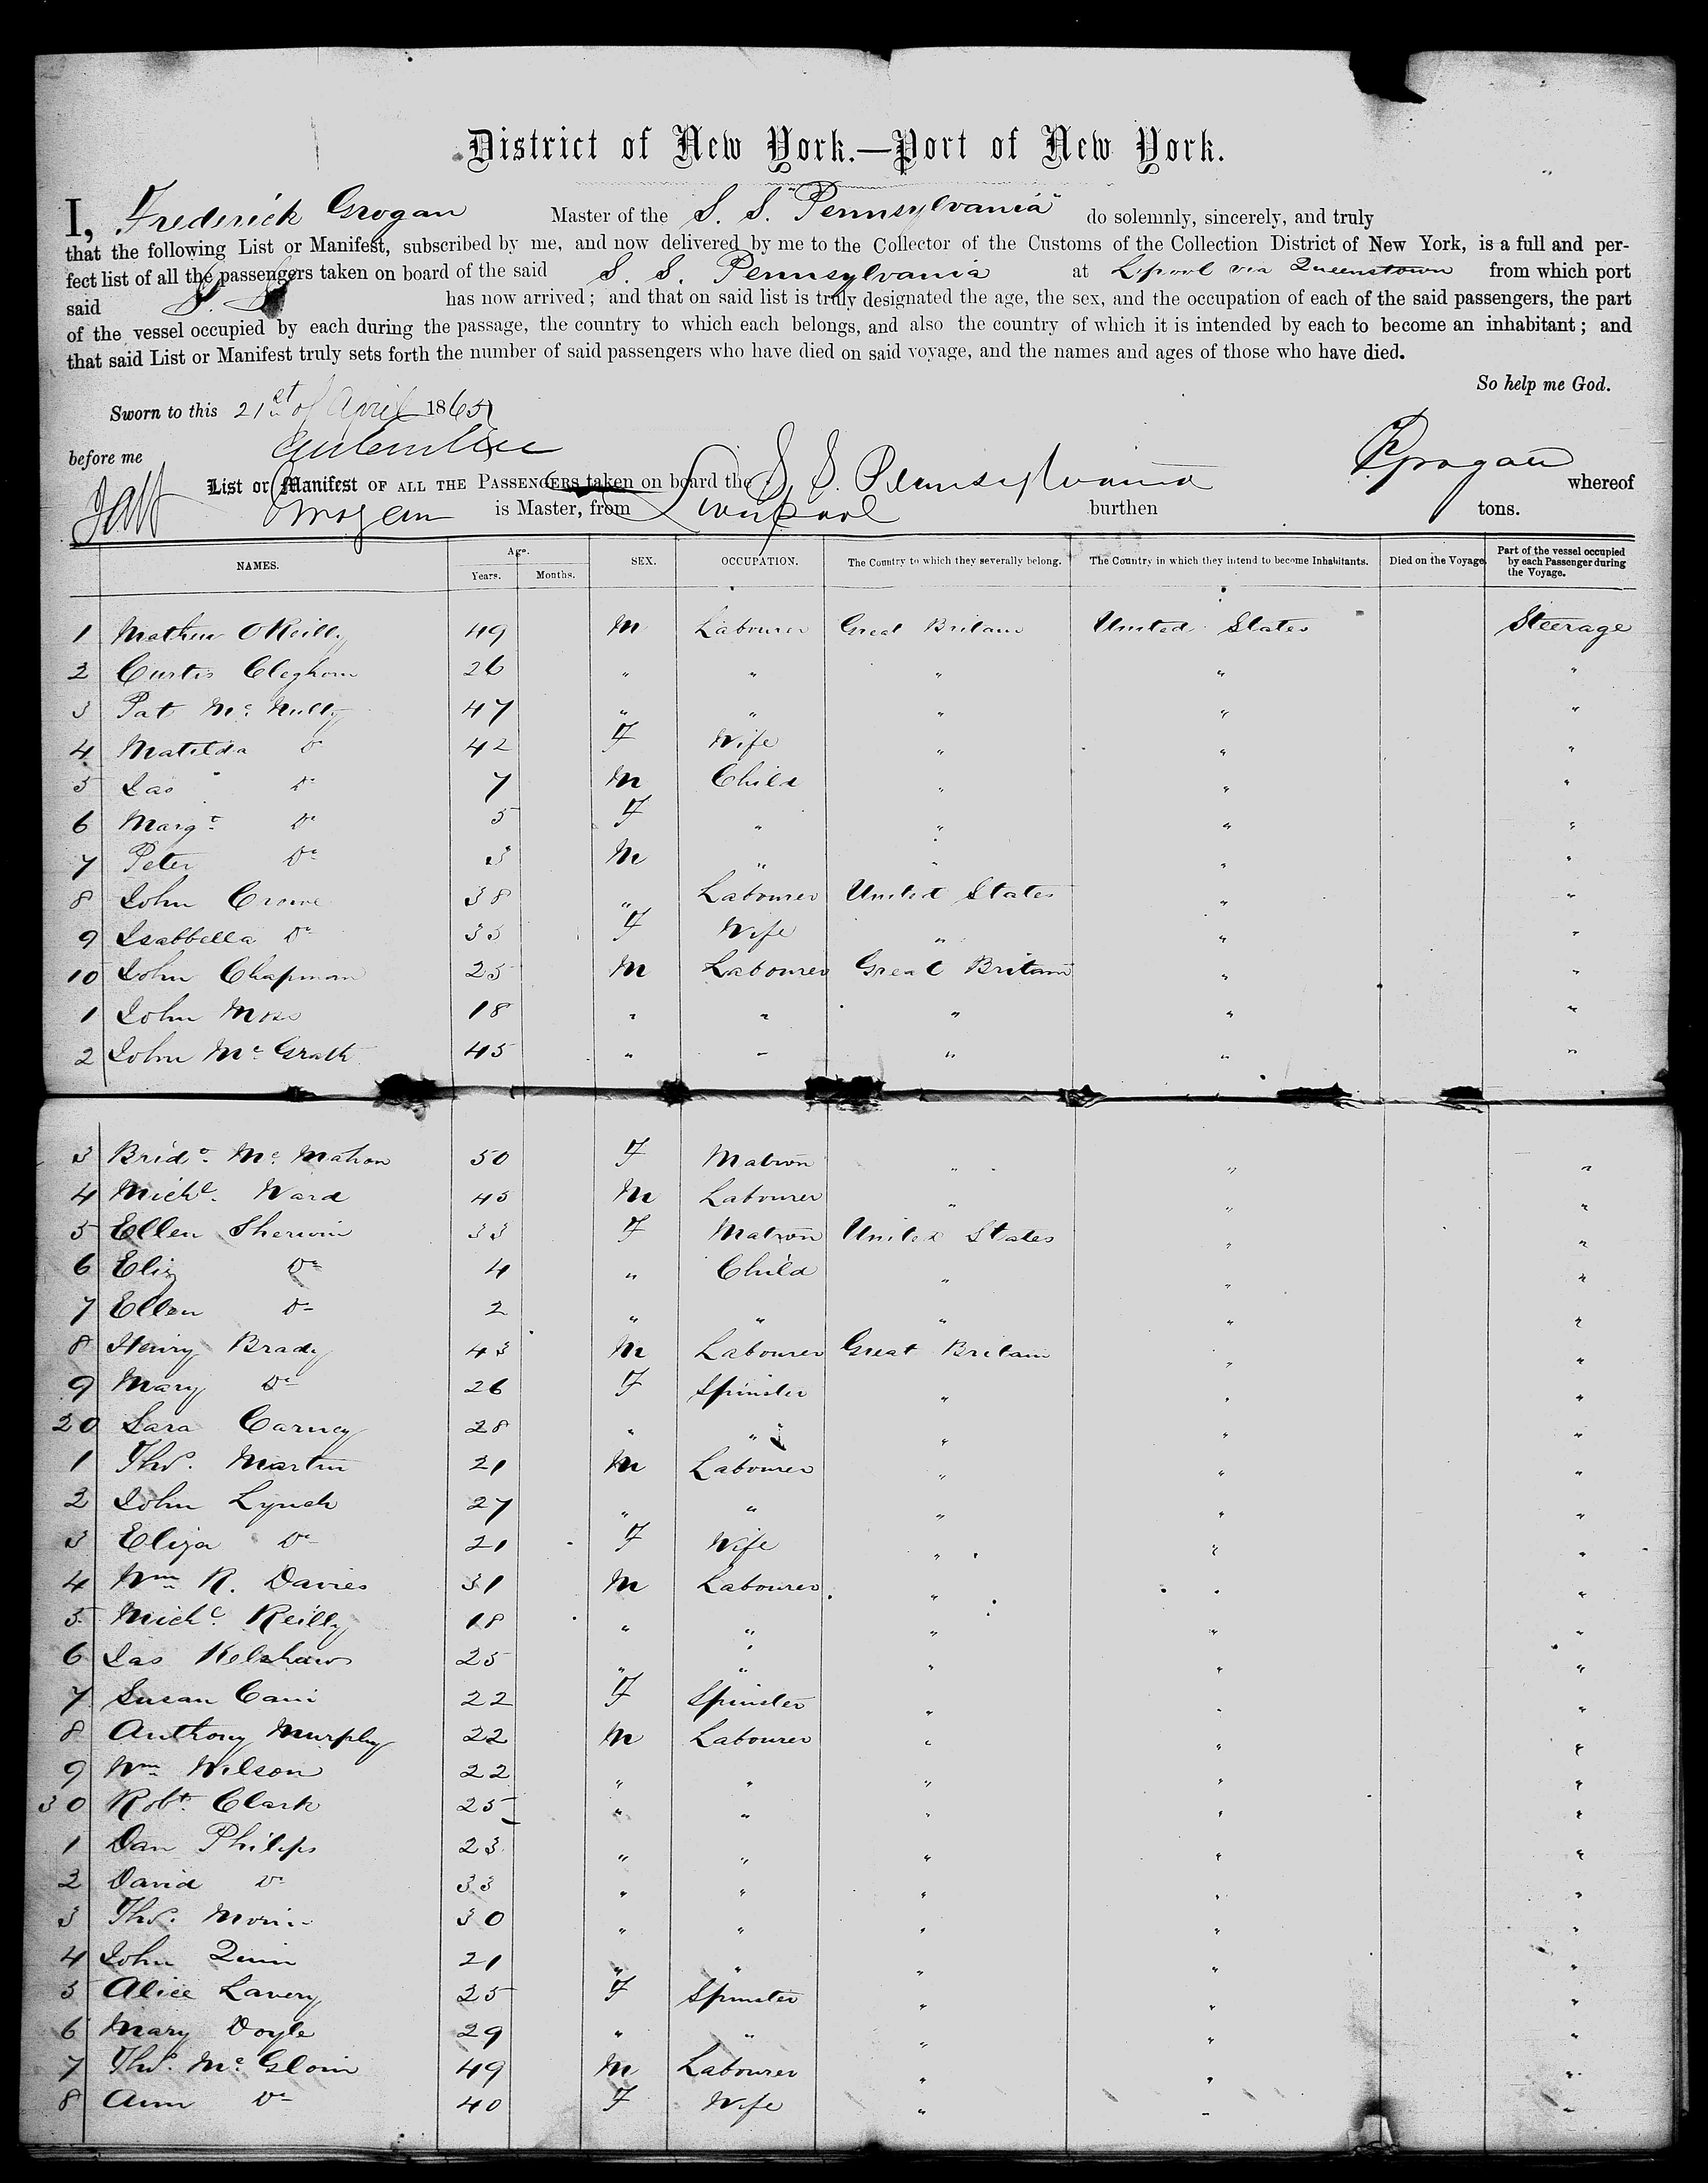 District of New York.—Port of New York.
I, Frederick Grogan Master of the S. S. "Pennsylvania" do solemnly, sincerely, and truly
that the following List or Manifest, subscribed by me, and now delivered by me to the Collector of the Customs of the Collection District of New York, is a full and per-
fect list of all the passengers taken on board of the said S. S. Pennsylvania at L'pool via Queenstown from which port
said S. S. has now arrived; and that on said list is truly designated the age, the sex, and the occupation of each of the said passengers, the part
of the vessel occupied by each during the passage, the country to which each belongs, and also the country of which it is intended by each to become an inhabitant; and
that said List or Manifest truly sets forth the number of said passengers who have died on said voyage, and the names and ages of those who have died.
So help me God.
Sworn to this 21st of April 1865
before me
List or Manifest OF ALL THE PASSENGERS taken on board the S. S. Pennsylvania FGrogan whereof
Grogan is Master, from Liverpool burthen tons.
NAMES. Age. Years. Months. SEX. OCCUPATION. The Country to which they severally belong. The Country in which they intend to become Inhabitants. Died on the Voyage. Part of the vessel occupied by each Passenger during the Voyage.
1 Mathew OReilly 49 M Labourer Great Britain United States Steerage
2 Curtis Cleghorn 26 " " " " "
3 Pat Mc Nully 47 " " " " "
4 Matilda Do 42 F Wife " " "
5 Jas Do 7 M Child " " "
6 Margt Do 5 F " " " "
7 Peter Do 3 M " " " "
8 John Crowe 38 " Labourer United States " "
9 Isabbella Do 35 F Wife " " "
10 John Chapman 25 M Labourer Great Britain " "
1 John Moss 18 " " " " "
2 John Mc Grath 45 " " " " "
3 Bridt Mc Mahon 50 F Matron " " "
4 Michl Ward 45 M Labourer " " "
5 Ellen Sherwin 33 F Matron United States " "
6 Eliz Do 4 " Child " " "
7 Ellen Do 2 " " " " "
8 Henry Brady 43 M Labourer Great Britain " "
9 Mary Do 26 F Spinster " " "
20 Sara Carney 28 " " " " "
1 Thos. Martin 21 M Labourer " " "
2 John Lynch 27 " " " " "
3 Eliza Do 21 F Wife " " "
4 Wm R. Davies 31 M Labourer " " "
5 Michl Reilly 18 " " " " "
6 Jas Kelshaw 25 " " " " "
7 Susan Cain 22 F Spinster " " "
8 Anthony Murphy 22 M Labourer " " "
9 Wm Wilson 22 " " " " "
30 Robt. Clark 25 " " " " "
1 Dan Philips 23 " " " " "
2 David Do 33 " " " " "
3 Thos. 30 " " " " "
4 John Quin 21 " " " " "
5 Alice Lavery 25 F Spinster " " "
6 Mary Doyle 29 " " " " "
7 Thos. Mc Gloin 49 M Labourer " " "
8 Ann Do 40 F Wife " " "